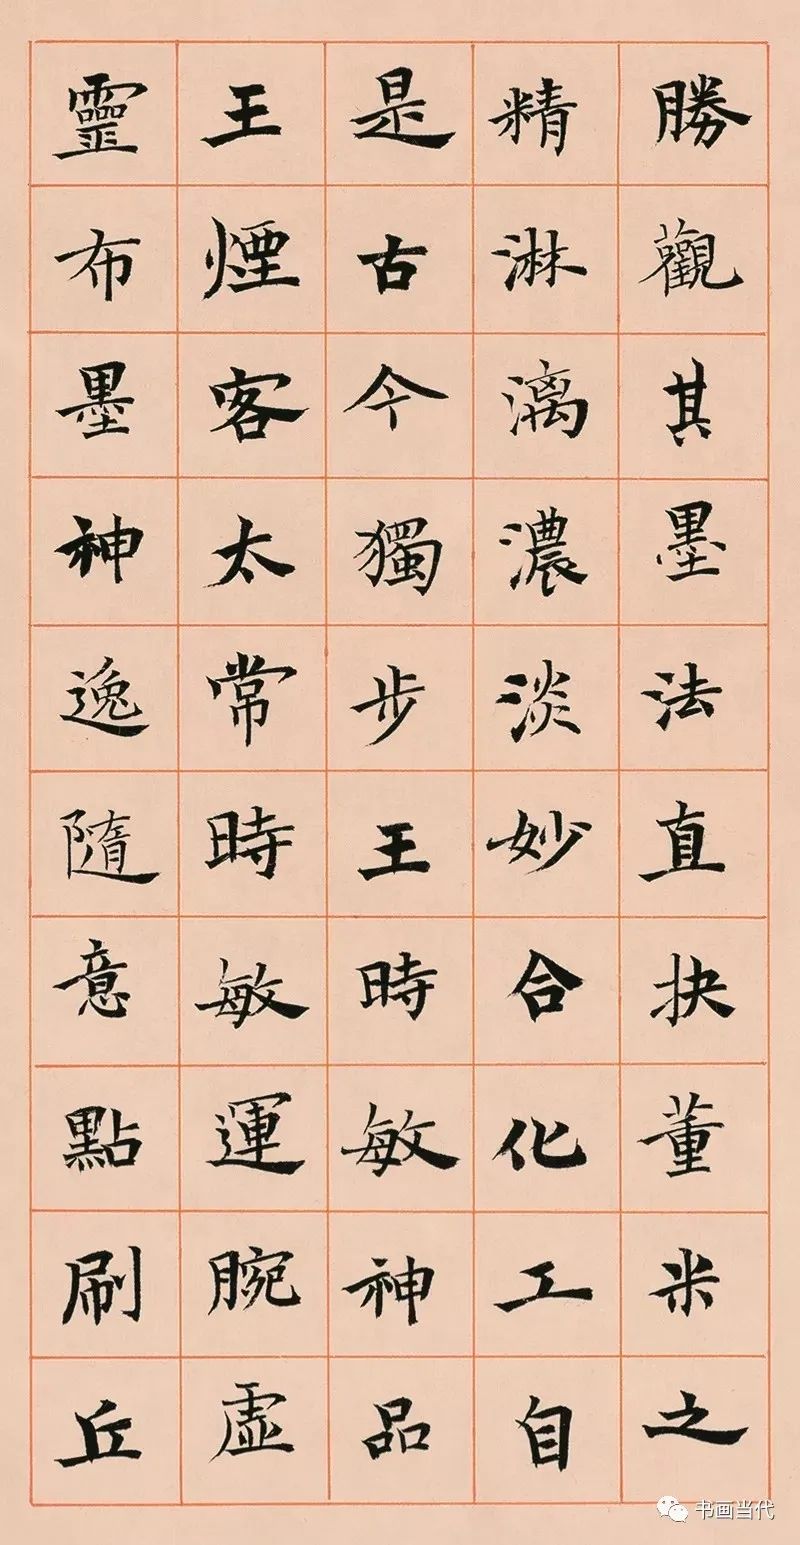 勝觀其墨法直抉董米之
精淋漓濃淡妙合化工自
是古今獨步王時敏神品
王煙客太常時敏運腕虛
靈布墨神逸隨意點刷丘
书画当代